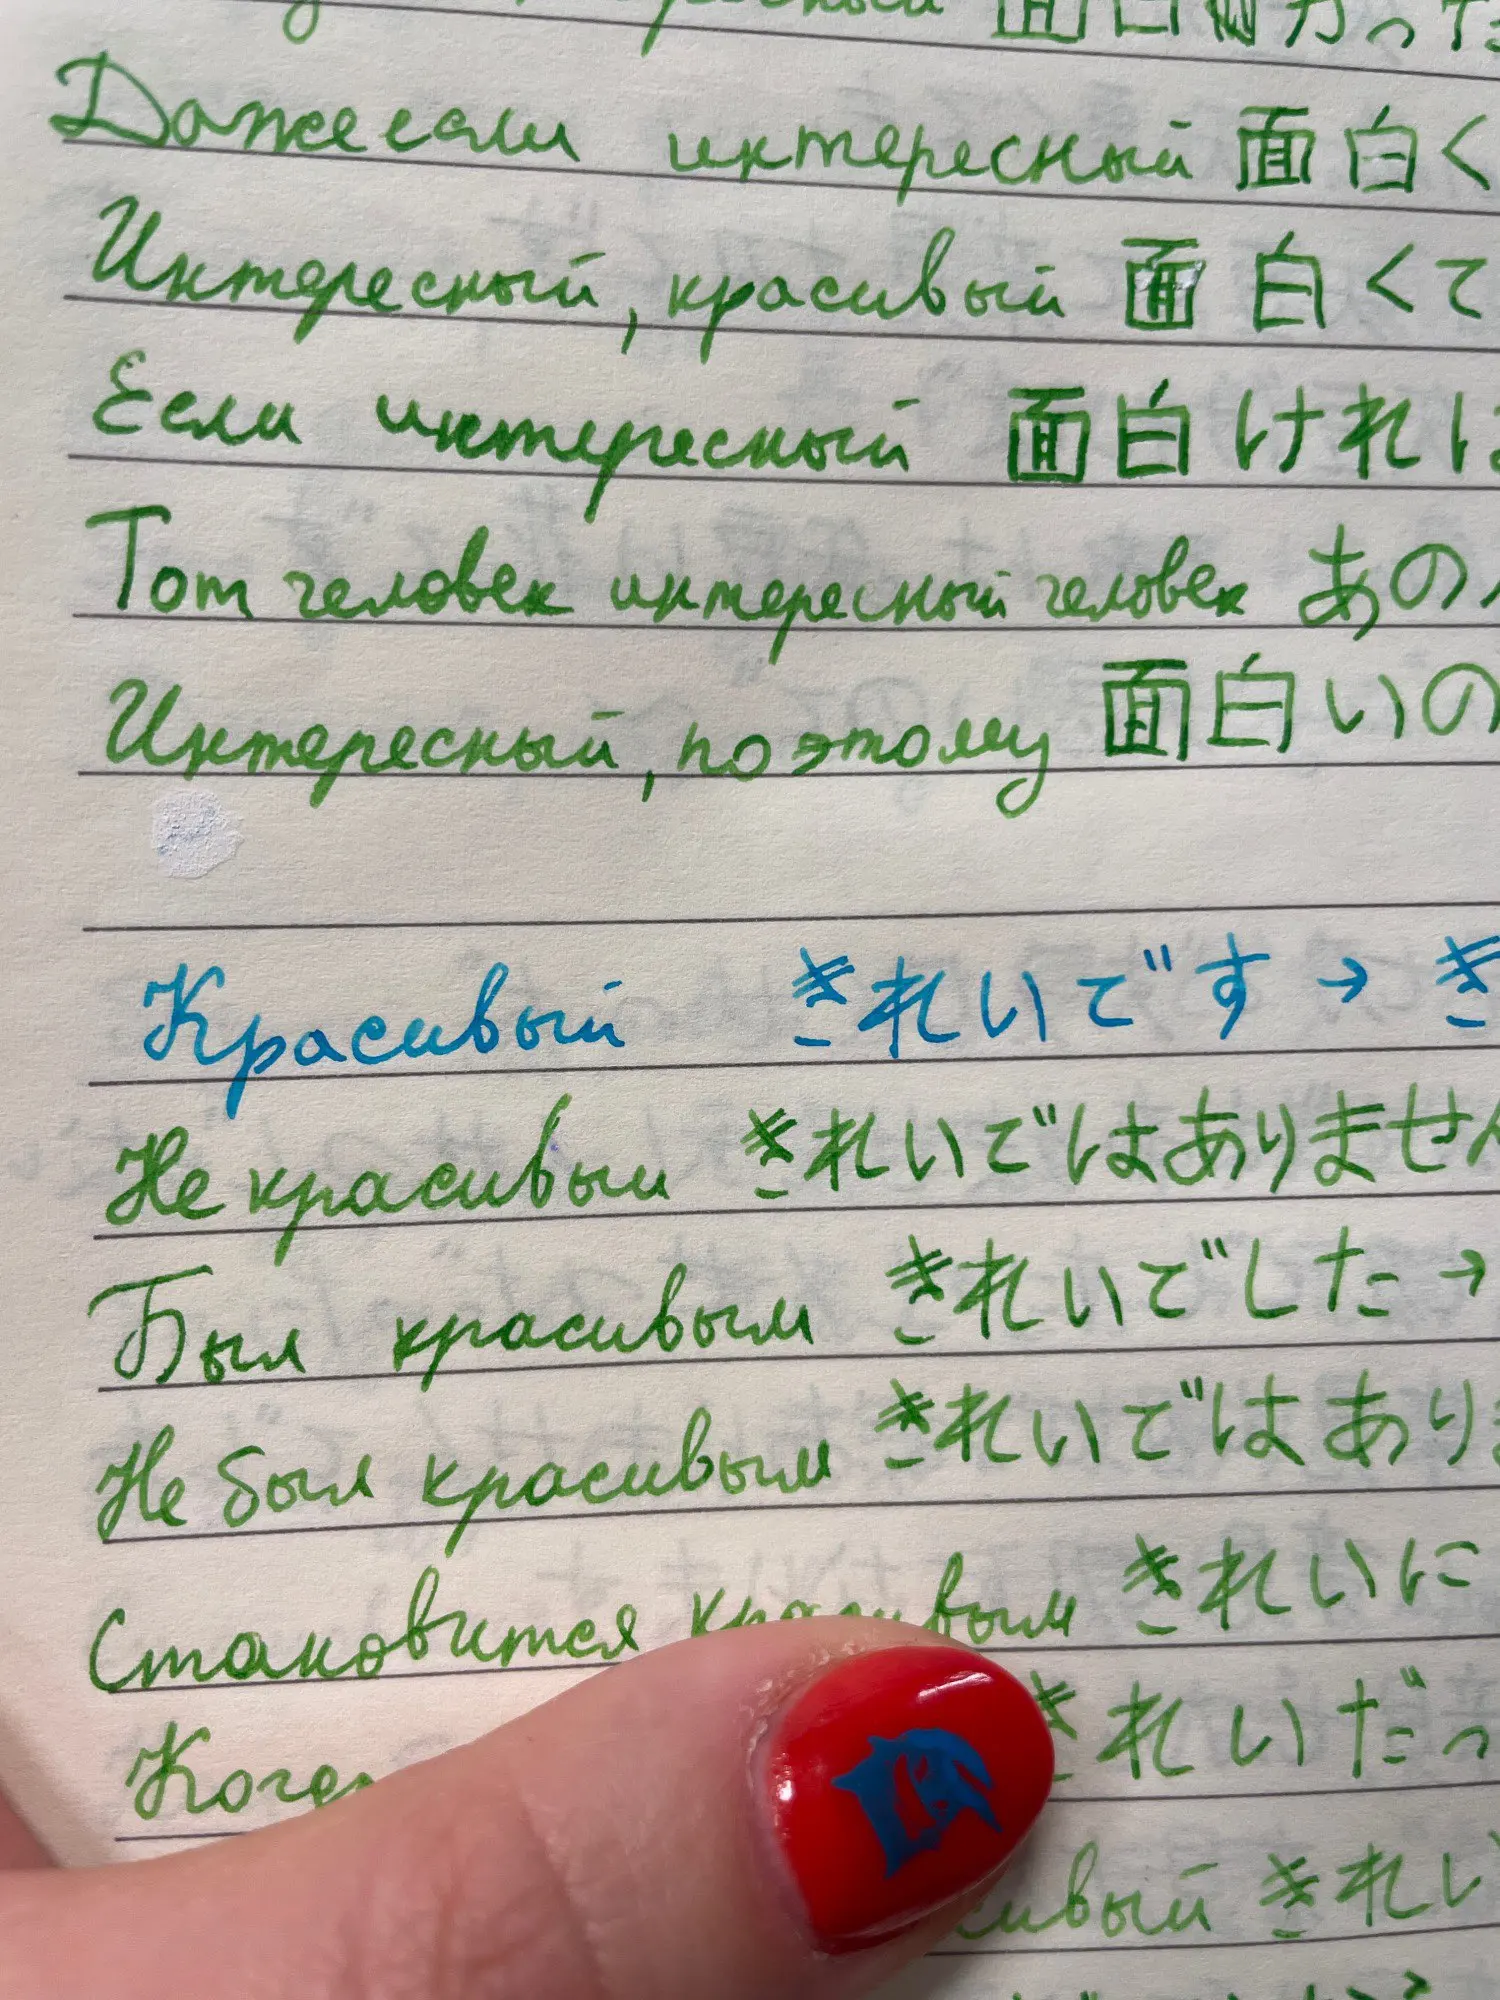 面白 かった
Даже если интересный 面白く
Интересный, красивый 面白くて
Если интересный 面白ければ
Тот человек интересный человек あの
Интересный, поэтому 面白いの
Красивый きれいです → き
Не красивый きれいではありません
Был красивым きれいでした →
Не был красивым きれいではありま
Становится красивым きれいに
きれいだっ
きれい